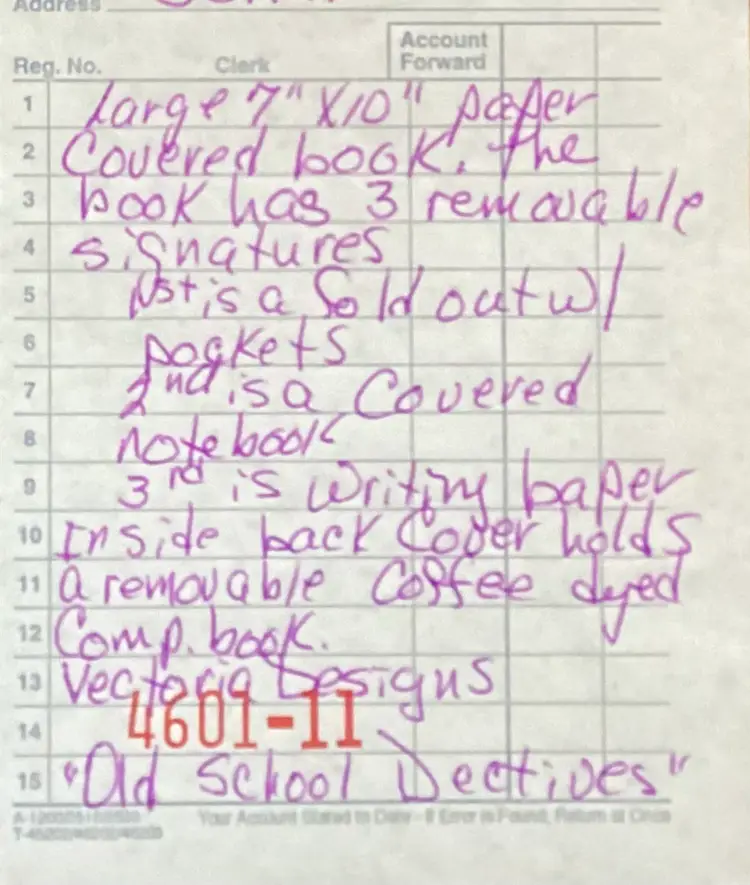 Address
Account
Forward
Reg. No. Clerk
1 large 7" X10" paper
2 Covered book. the
3 book has 3 removable
4 signatures
5 1st is a fold out w/
6 pockets
7 2nd is a Covered
8 notebook
9 3rd is writing paper
10 Inside back Cover holds
11 a removable Coffee dyed
12 Comp. book.
13 Vectoria Designs
14 4601-11
15 "Old School Dectives"
Your Account Stated to Date - If Error is Found, Return at Once